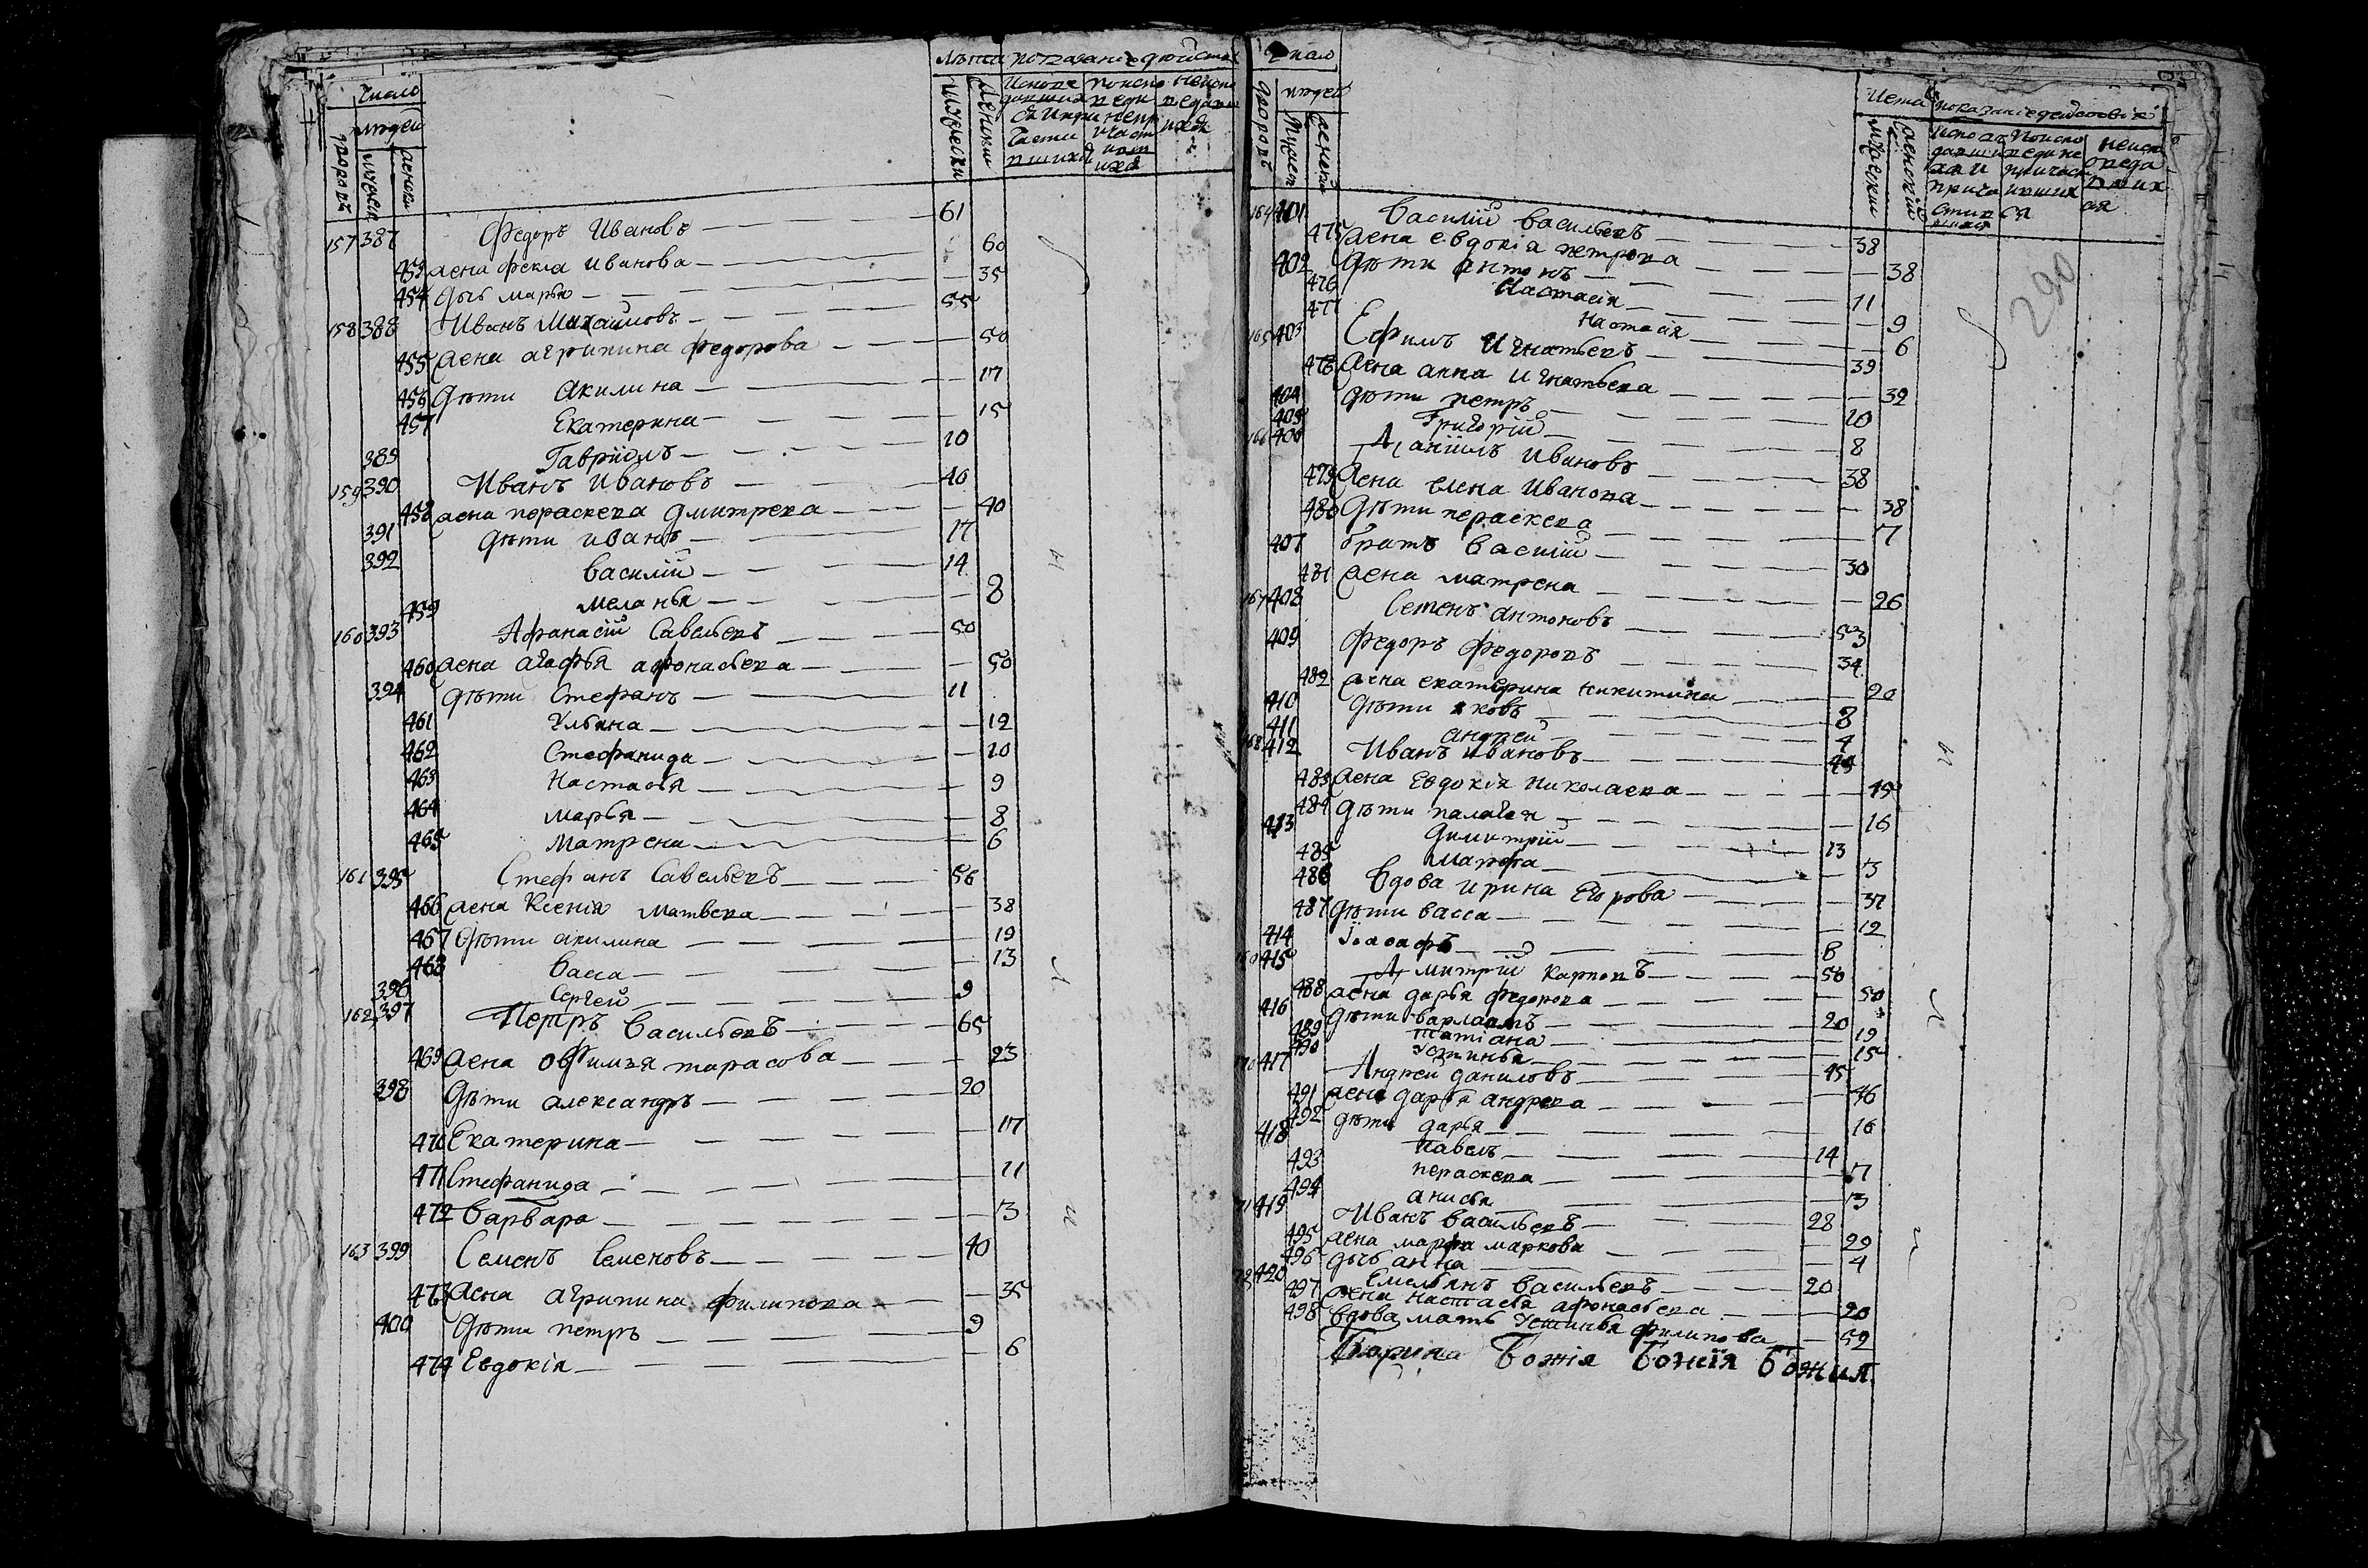 Число лѣта показание дѣйства
людеи
дворовъ мужеск женски мужески женски
157 387 Федоръ Ивановъ 61
453 жена фекла иванова 60
454 дочь марья 35
158 388 Иванъ Михаиловъ 55
455 жена агрипина федорова 50
456 дѣти акилина 17
457 Екатерина 15
389 Гаврїилъ 10
159 390 Иванъ Ивановъ 40
458 жена пераскева дмитрева 40
391 дѣти иванъ 17
392 василїй 14
459 меланья 8
160 393 Афанасїй Савельевъ 50
460 жена агафья афонасьева 50
394 дѣти стефанъ 11
461 Ульяна 12
462 Стефанида 10
463 Настасья 9
464 марья 8
465 матрена 6
161 395 Стефанъ Савельевъ 56
466 жена Ксенїя матвева 38
467 дѣти акилина 19
468 васса 13
396 Сергей 9
162 397 Петръ Васильевъ 65
469 жена офимья тарасова 23
398 дѣти александръ 20
470 Екатерина 17
471 Стефанида 11
472 варвара 3
163 399 Семенъ Семеновъ 40
473 жена агрипина филипова 35
400 дѣти петръ 9
474 Евдокїя 6
Число
людеи лета показанїе действїя
дворовъ мужеск женски мужески женский
290
164 401 Василїй васильевъ 38
475 жена евдокїа петрова 38
402 дѣти антонъ 11
476 Настасїя 9
477 Настасїя 6
165 403 Ефимъ Игнатьевъ 39
478 жена анна игнатьева 39
404 дѣти петръ 10
405 Григорїй 8
166 406 Данїилъ Ивановъ 38
479 жена елена Иванова 38
480 дѣти пераскева 7
407 братъ василїй 30
481 жена матрена 26
167 408 Семенъ антоновъ 53
409 федоръ федоровъ 34
482 жена екатерина никитина 20
410 дѣти яковъ 8
411 андрей 4
168 412 Иванъ ивановъ 45
483 жена Евдокїя николаева 45
484 дѣти палагея 16
413 димитрїй 13
485 марфа 3
486 вдова ирина Егорова 37
487 дѣти васса 12
414 їоасафъ 8
415 Дмитрїй карповъ 50
488 жена дарья федорова 50
416 дѣти варлаамъ 20
489 татїана 19
490 устинья 15
417 Андрей даниловъ 45
491 жена дарья андрева 46
492 дѣти дарья 16
418 павелъ 14
493 пераскева 7
494 анисья 3
419 Иванъ васильевъ 28
495 жена марфа маркова 29
496 дочь анна 4
420 Емельянъ васильевъ 20
497 жена настасья афонасьева 20
498 вдова мать устинья филипова 52
Божїя Божїя Божия